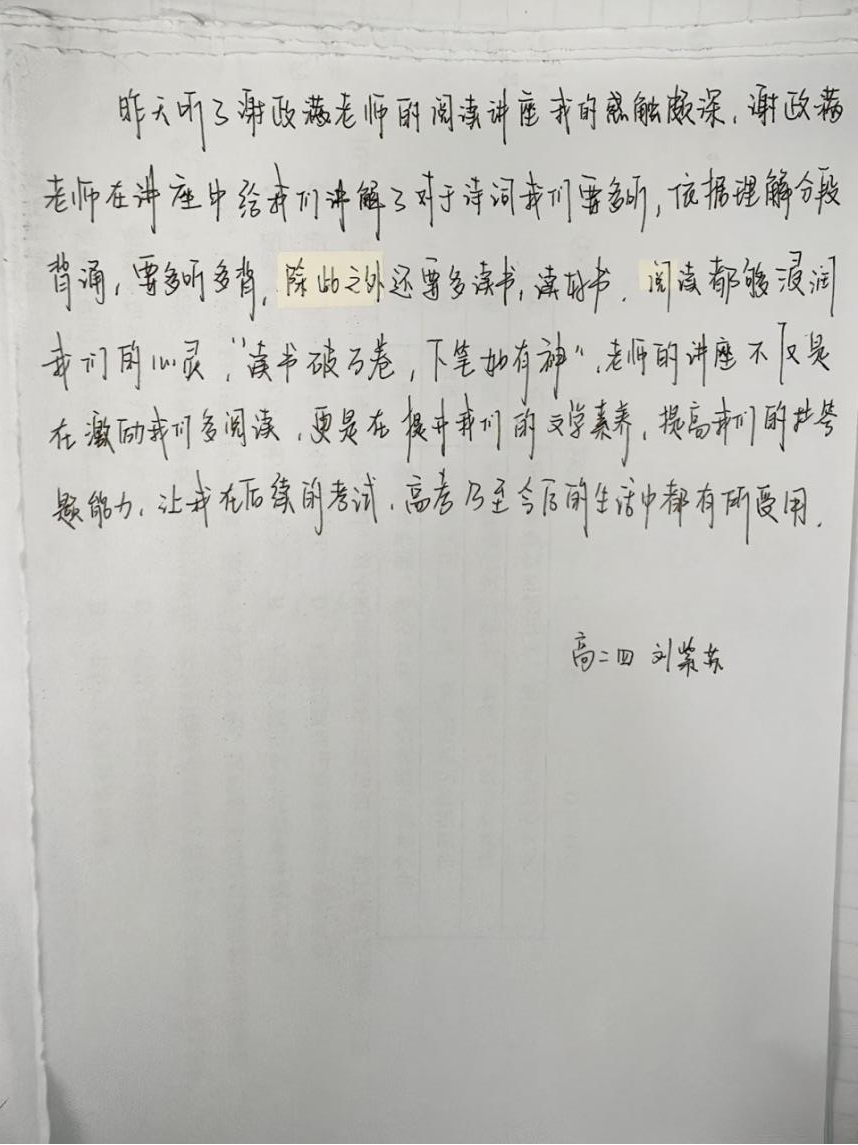 昨天听了谢政满老师的阅读讲座我的感触颇深，谢政满
老师在讲座中给我们讲解了对于诗词我们要多听，依据理解分段
背诵，要多听多背，除此之外还要多读书，读好书．阅读都够浸润
我们的心灵，"读书破万卷，下笔如有神"，老师的讲座不仅是
在激励我们多阅读，更是在提升我们的文学素养，提高我们的
题能力，让我在后续的考试，高考乃至今后的生活中都有所受用．
高二四 刘紫苏